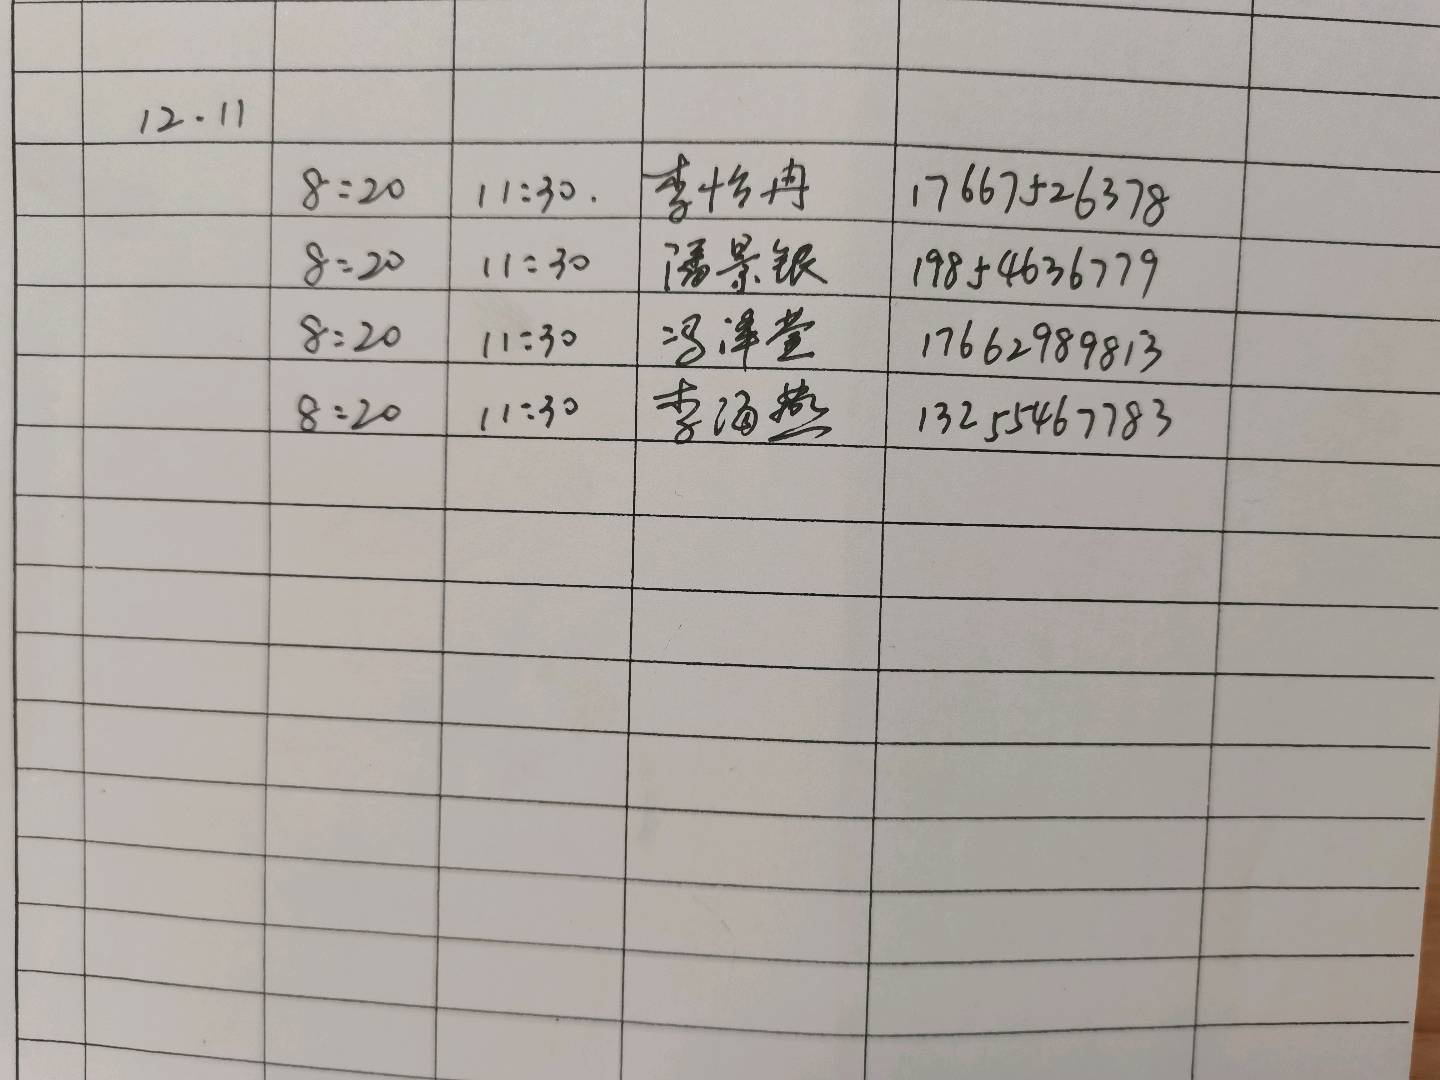 12.11
8:20 11:30. 李怡冉 17667526378
8:20 11:30 潘景银 19854636779
8:20 11:30 冯泽萱 17662989813
8:20 11:30 李海燕 13255467783